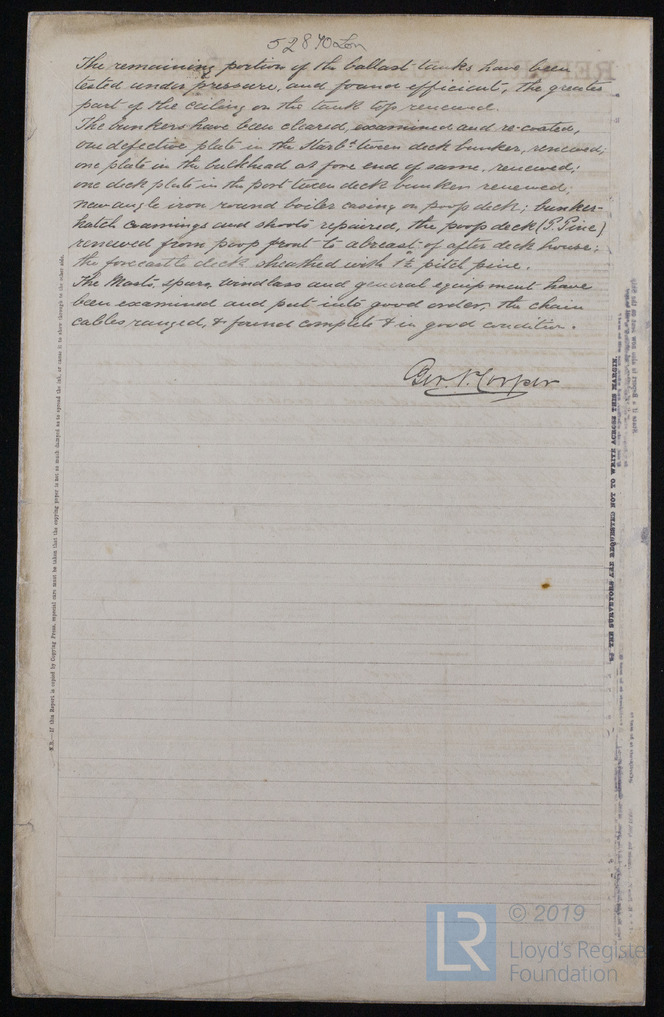 52870 Lon
The remaining portion of the ballast tanks have been
tested under pressure, and found efficient, the greater
part of the ceiling on the tank top renewed.
The bunkers have been cleared, examined and re-coated,
one defective plate in the Starbd tween deck bunker, renewed;
one plate in the bulkhead at fore end of same, renewed;
one deck plate in the port tween deck bunker renewed;
new angle iron round boiler casing on poop deck; bunker-
hatch coamings and shoots repaired, the poop deck (P. Pine)
renewed from poop front to abreast of after deck house;
the forecastle deck sheathed with 1½ pitch pine.
The Masts, spars, windlass and general equipment have
been examined and put into good order, the chain
cables ranged, & found complete & in good condition.
Geo. Corper
N.B.—If this Report is copied by Copying Press, especial care must be taken that the copying paper is not so much damped as to spread the ink, or cause it to show through to the other side.
THE SURVEYORS ARE REQUESTED NOT TO WRITE ACROSS THIS MARGIN.
LR
© 2019
Lloyd's Register
Foundation